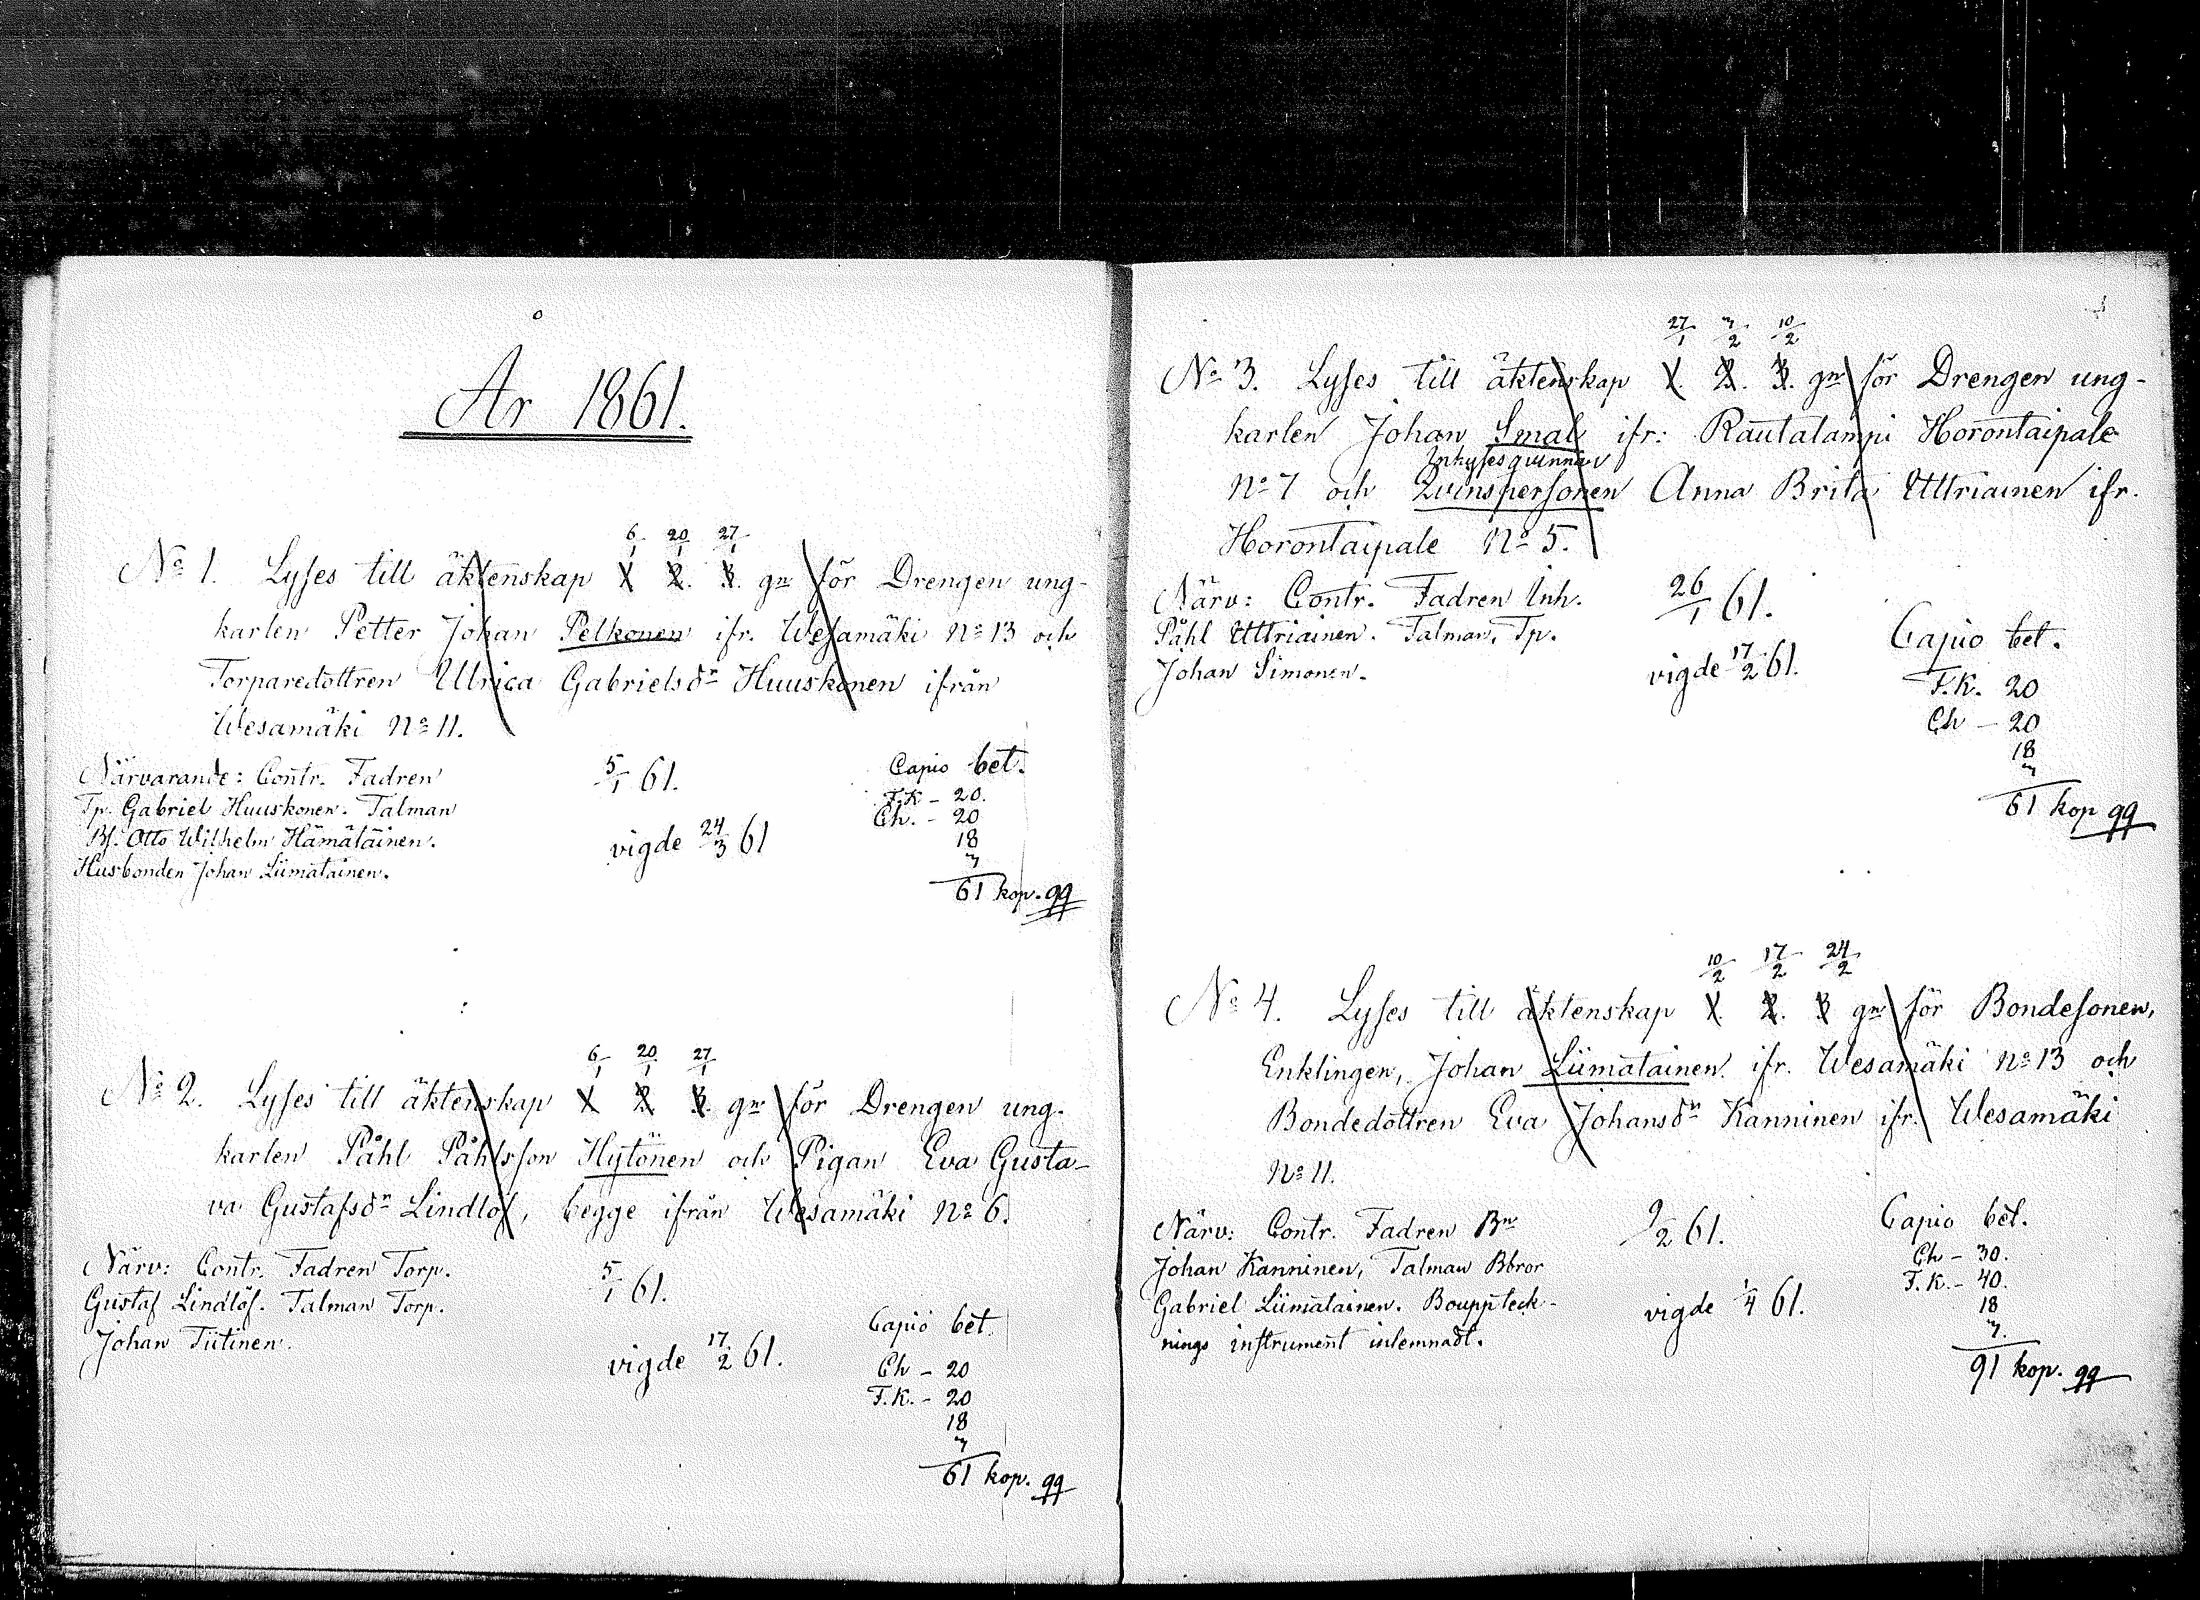 År 1861.
6/1 20/1 27/1
No 1. Lyses till äktenskap 1. 2. 3. gn för Drengen ung-
karlen Petter Johan Pelkonen ifr. Wesamäki No 13 och
Torparedottren Ulrica Gabrielsdr Huuskonen ifrån
Wesamäki No 11.
Närvarande: Contr. Fadren
Tp. Gabriel Huuskonen. Talman
Bf. Otto Wilhelm Hämäläinen.
Husbonden Johan Liimatainen.
5/1 61.
vigde 24/3 61
Capio bet.
F.K - 20.
Ch. - 20
18
3
61 kop. qq
6/1 20/1 27/1
No 2. Lyses till äktenskap 1 2. 3. gn för Drengen ung-
karlen Påhl Påhlsson Hytönen och Pigan Eva Gusta-
va Gustafsdr Lindlöf, begge ifrån Wesamäki No 6.
Närv: Contr. Fadren Torp.
Gustaf Lindlöf. Talman Torp.
Johan Tiitinen.
5/1 61.
vigde 17/2 61.
Capio bet.
Ch - 20
F.K. - 20
18
3
61 kop. qq
27/1 3/2 10/2
No 3. Lyses till äktenskap 1. 2. 3. gn för Drengen ung-
karlen Johan Smal ifr: Rautalampi Horontaipale
Inhysesqvinnan
No 7 och Qvinspersonen Anna Brita Uttriainen ifr.
Horontaipale No 5.
Närv: Contr. Fadren Inh.
Påhl Uttriainen. Talman, Tp.
Johan Simonen.
26/1 61.
vigde 17/2 61.
Capio bet.
F.K. 20
Ch - 20
18
3
61 kop qq
10/2 17/2 24/2
No 4. Lyses till äktenskap 1. 2. 3 gn för Bondesonen,
Enklingen, Johan Liimatainen ifr. Wesamäki No 13 och
Bondedottren Eva Johansdr Kanninen ifr. Wesamäki
No 11.
Närv: Contr. Fadren Bn
Johan Kanninen, Talman Bbror
Gabriel Liimatainen. Bouppteck-
nings instrument inlemnadt.
9/2 61.
vigde 1/4 61.
Capio bet.
Ch - 30.
F.K. - 40.
18
3.
91 kop. qq